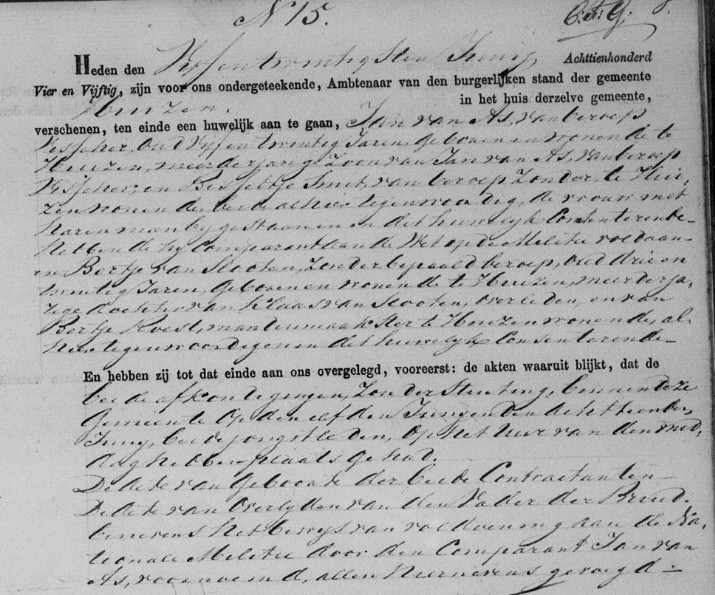 N 15.
Heden den Vyf en twintigsten Juny Achttienhonderd
Vier en Vijftig, zijn voor ons ondergeteekende, Ambtenaar van den burgerlijken stand der gemeente
Huizen. in het huis derzelve gemeente,
verschenen, ten einde een huwelijk aan te gaan, Jan van As, van beroep
Visscher, oud Vyf en twintig Jaren, geboren en wonende te
Huizen, meerderjarig Zoon van Jan van As, van beroep
Visscher, en Smit, van beroep Zonder, te Hui
zen wonende, beide alhier tegenwoordig, de vrouw met
haren man bygestaan en in dit huwelyk Consenterende
hebbende hy Comparant aan de Wet op de Militie voldaan
en Bertje van Slooten, Zonder bepaald beroep, oud drie en
twintig Jaren, geboren en wonende te Huizen, meerderja
rige dochter van Klaas van Slooten, overleden, en van
Bertje Roest, mandenmaakster te Huizen wonende, al
hier tegenwoordig en in dit huwelyk Consenterende
En hebben zij tot dat einde aan ons overgelegd, vooreerst: de akten waaruit blijkt, dat de
beide afkondigingen, Zonder Stuiting, binnen deze
Gemeente op den elfden Juny en den achttienden
Juny, beide jongstleden, op het uur van den mid
dag hebben plaats gehad.
De Acte van Geboorte der beide Contractanten
De Acte van Overlyden van den Vader der Bruid
benevens het bewys van voldoening aan de Na
tionale Militie door den Comparant Jan van
As, voornoemd, allen hiernevens gevoegd